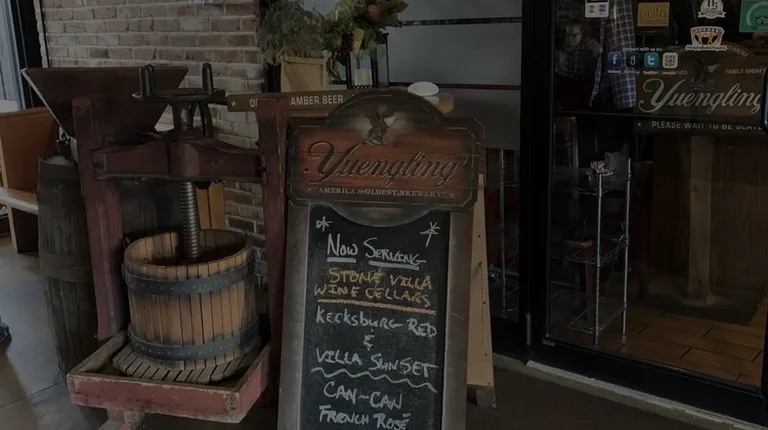 AMBER BEER
Yuengling
AMERICA'S OLDEST BREWERY
NOW SERVING
STONE VILLA
WINE CELLARS
KECKSBURG RED
&
VILLA SUNSET
CAN-CAN
FRENCH ROSÉ
15
Yuengling
PLEASE WAIT TO BE